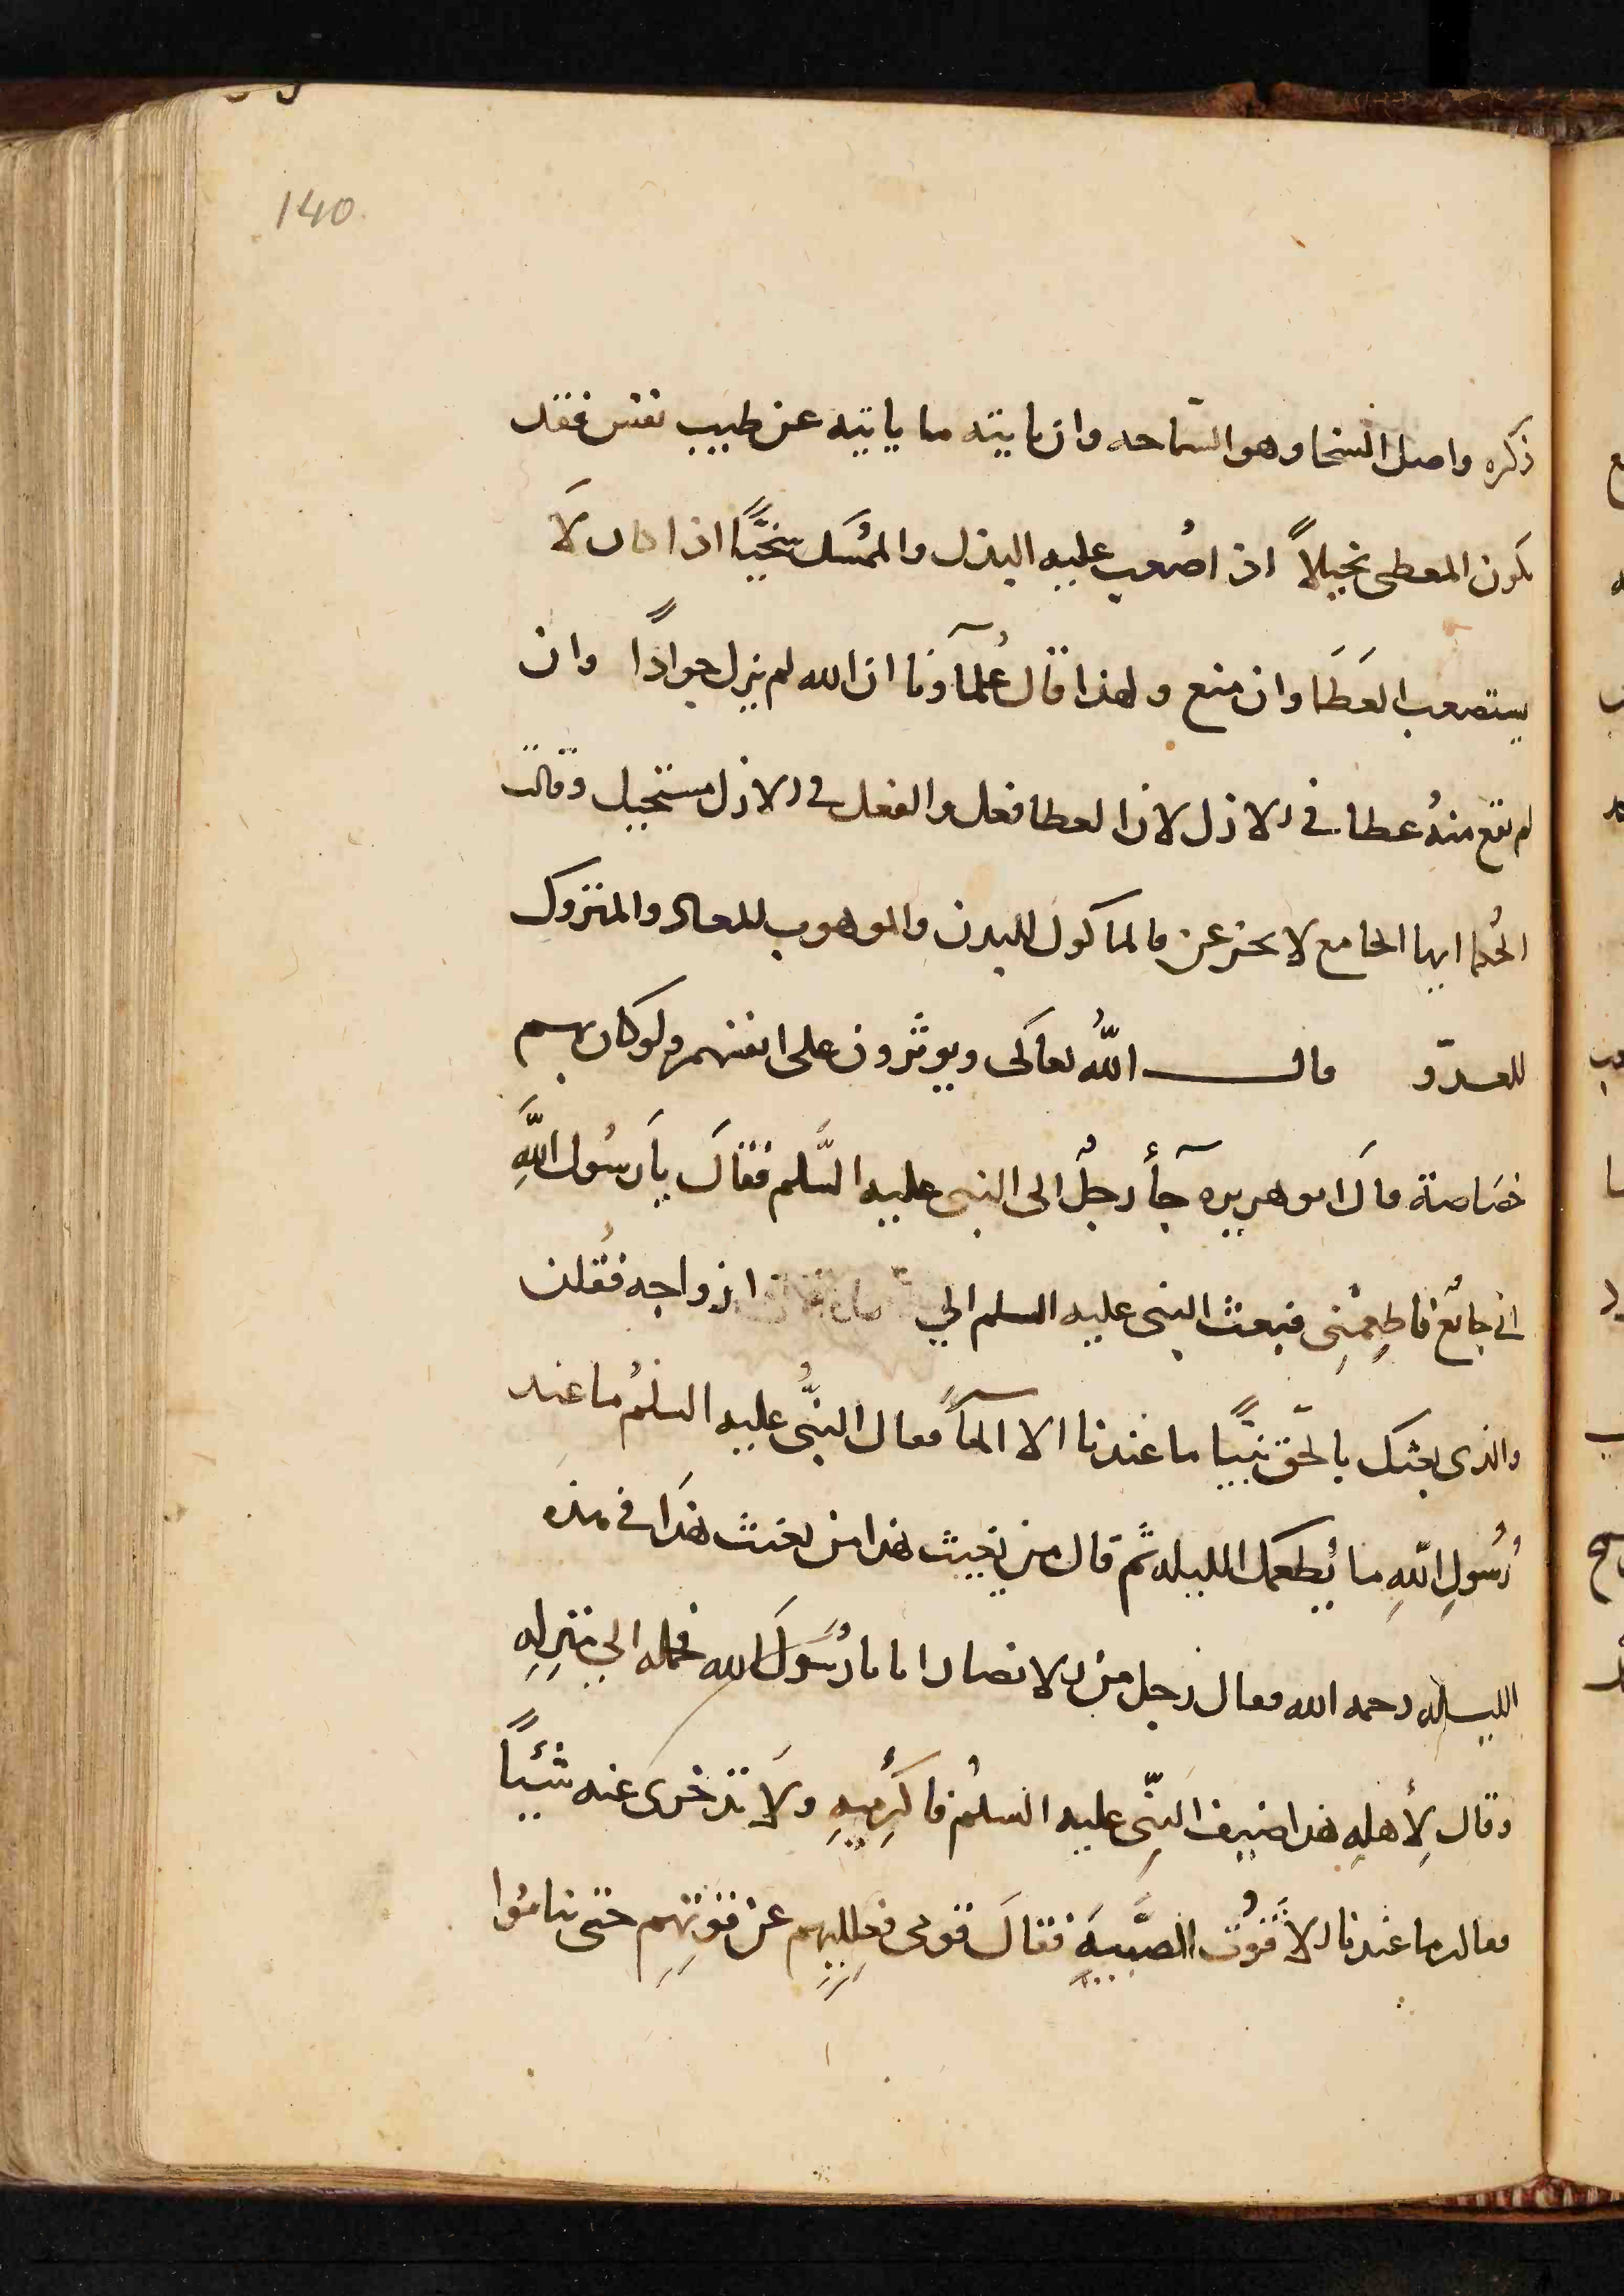 140
ذكره واصل السخا وهو السّماحه وان ياتيه ما ياتيه عن طيب نفس فقد
يكون المعطى بخيلاً اذ اصُعب عليه البذل والممُسَك سَخيًّا اذا كان لَا
يستصعب العَطَا وان منع ولهذا قال عُلمآونا ان الله لم يزل جوادًا وان
لم يقع منهُ عطا في الازل لان العطا فعل والفعل في الازل مستحيل وقالت
الحُكما ايها الجامع لا تخدعن فالماكول للبدن والموهوب للمعاد والمتروك
للعدوّ قال اللّهُ تعالَى ويوثرون على انفسهم ولو كان بهم
خصَاصة قالَ ابو هريره جآء رجلٌ الى النبى عليه السَّلم فقالَ يَا رسُول اللَّهِ
انى جائع فاطِعمْنِى فبعث النبى عليه السلم الي ازواجه فقُلن
والذى بعثك بالحّق نبيًّا ما عندنا الا المآءً فقال النبُّى عليه السلمُ ما عند
رُسُولِ اللّهِ ما يُطعمك الليله ثَم قال من يُغيث هذا من يغيث هذَا في هذه
الليله رحمه الله فقال رجل من الانصار انا يا رسُولَ الله فحمله الي منزِلِهِ
وقال لِأهلِهِ هذا ضيف النبّى عليه السلمُ فاكرِميهِ ولَا تدخرى عنه شيًئًا
فقالت ما عندنا الّا قوُت الصَّبيَهِ فقالَ قومى فعلليهم عن قوتِهِم حتى يناموُا